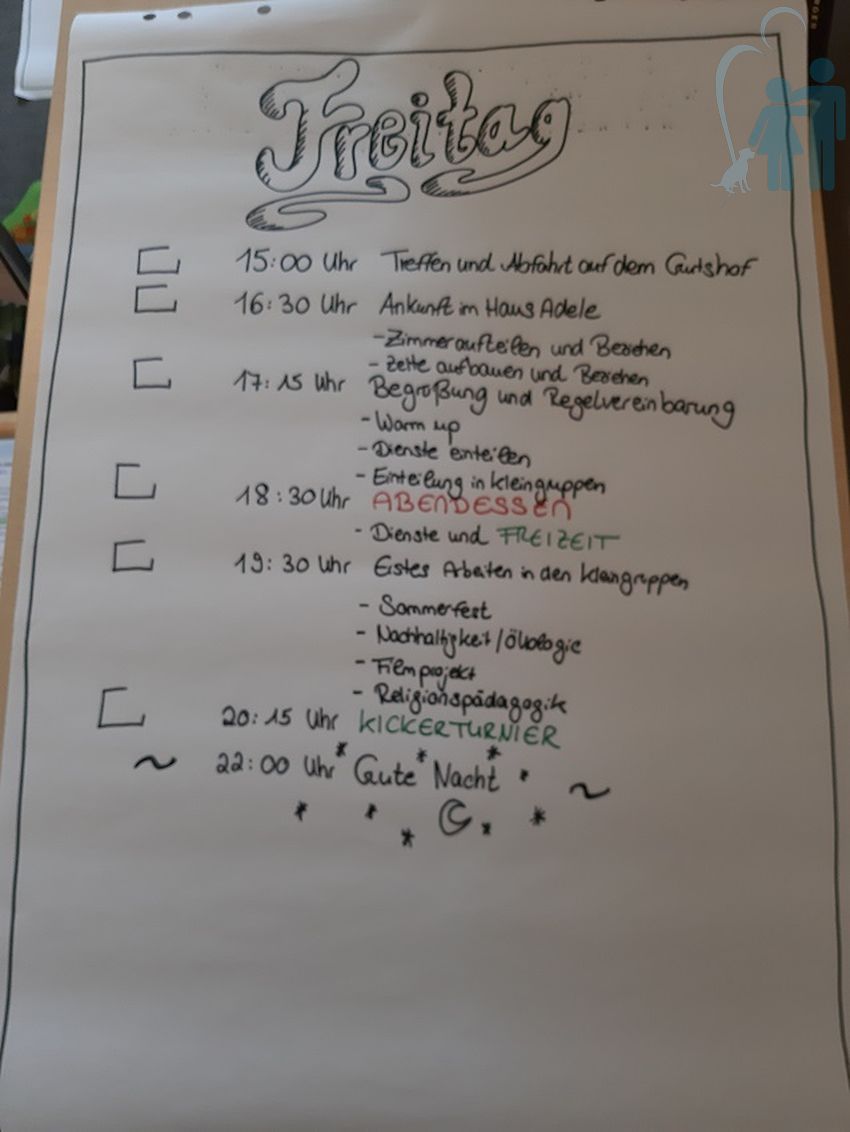 Freitag
15:00 Uhr Treffen und Abfahrt auf dem Gutshof
16:30 Uhr Ankunft im Haus Adele
- Zimmer aufteilen und Beziehen
- Zelte aufbauen und Beziehen
17:15 Uhr Begrüßung und Regelvereinbarung
- Warm up
- Dienste einteilen
- Einteilung in Kleingruppen
18:30 Uhr ABENDESSEN
- Dienste und FREIZEIT
19:30 Uhr Erstes Arbeiten in den Kleingruppen
- Sommerfest
- Nachhaltigkeit/Ökologie
- Filmprojekt
- Religionspädagogik
20:15 Uhr KICKERTURNIER
~ 22:00 Uhr Gute Nacht ~